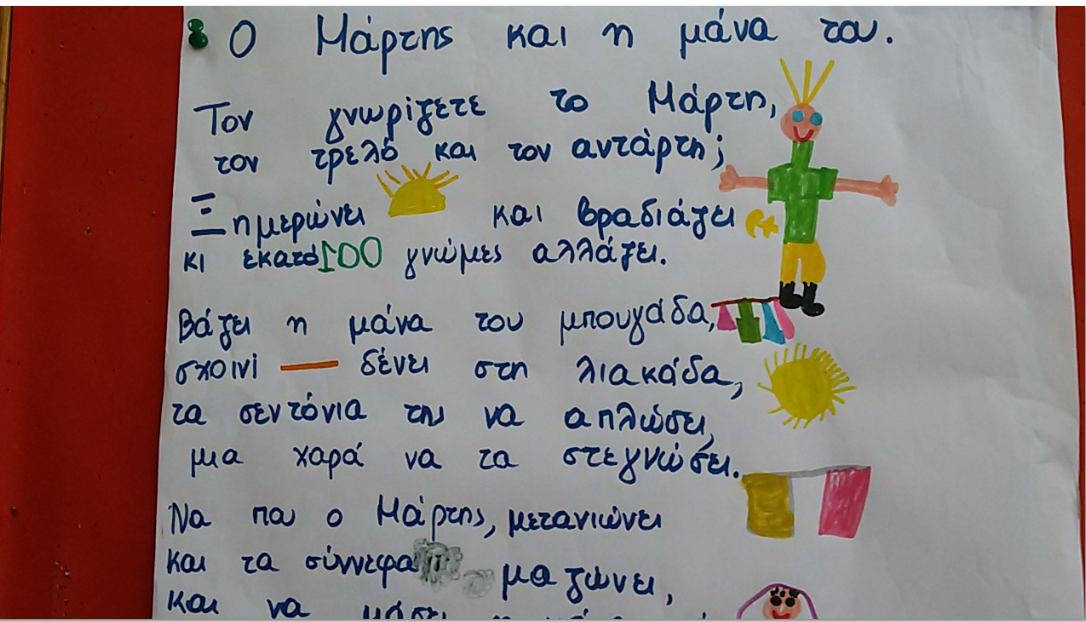 Ο Μάρτης και η μάνα του.
Τον γνωρίζετε το Μάρτη,
τον τρελό και τον αντάρτη;
Ξημερώνει και βραδιάζει
κι εκατό 100 γνώμες αλλάζει.
Βάζει η μάνα του μπουγάδα,
σχοινί δένει στη λιακάδα,
τα σεντόνια της να απλώσει,
μια χαρά να τα στεγνώσει.
Να που ο Μάρτης, μετανιώνει
και τα σύννεφα μαζώνει,
και να